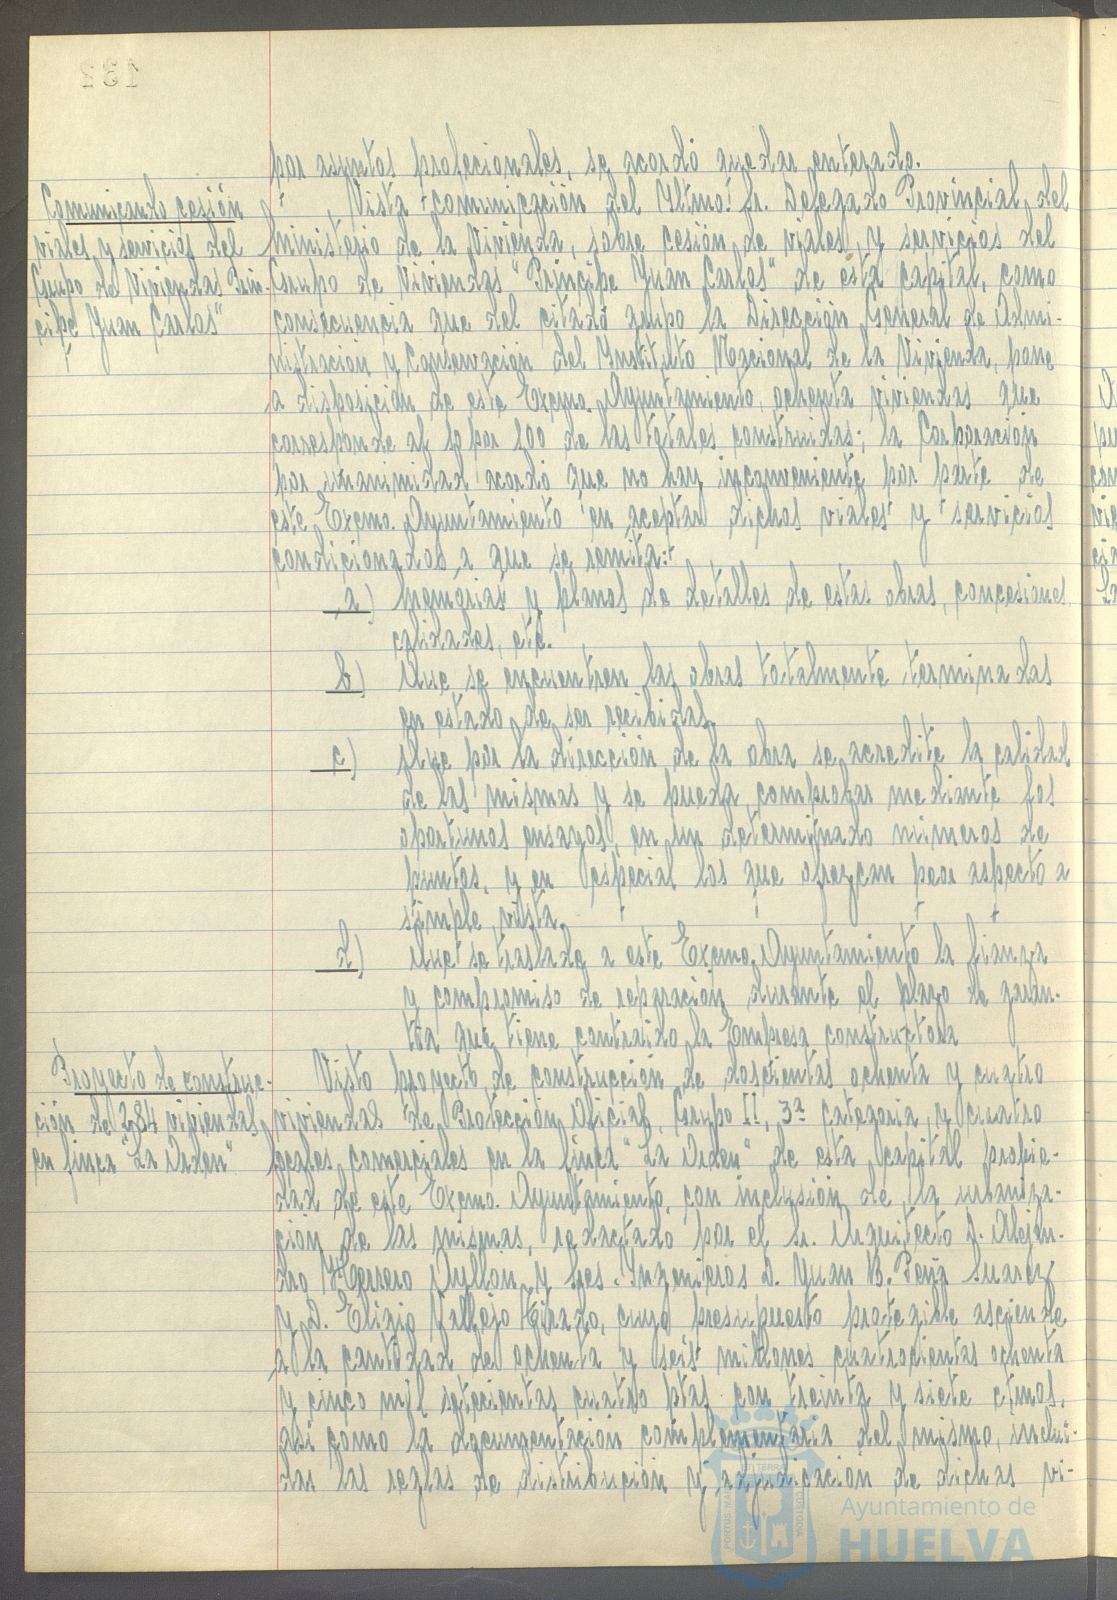 132
por asuntos profecionales, se acordó quedar enterado.
Comunicando cesión
viales y servicios del
Grupo de Viviendas "Prin-
cipe Juan Carlos"
Vista comunicación del Yltmo. Sr. Delegado Provincial del
Ministerio de la Vivienda, sobre cesión de viales, y servicios del
Grupo de Viviendas "Principe Juan Carlos" de esta capital, como
consecuencia que del citado grupo la Dirección General de Admi-
nistración y Conservación del Ynstituto Nacional de la Vivienda, pone
a disposición de este Excmo. Ayuntamiento, ochenta viviendas que
corresponde al 10 por 100 de las totales construidas; la Corporación
por unanimidad acordó que no hay inconveniente por parte de
este Excmo. Ayuntamiento en aceptar dichos viales y servicios
condicionados a que se remita:
a) Memorias y planos de detalles de estas obras, concesiones,
calidades, etc.
b) Que se encuentren las obras totalmente terminadas
en estado de ser recibidas
c) Que por la dirección de la obra se acredite la calidad
de las mismas y se pueda comprobar mediante los
oportunos ensayos, en un determinado números de
puntos, y en especial los que ofrezcan peor aspecto a
simple vista.
d) Que se traslade a este Excmo. Ayuntamiento la fianza
y compromiso de reparación durante el plazo de garan-
tía que tiene contraido la Empresa constructora
Proyecto de construc-
ción de 284 viviendas
en finca "La Orden"
Visto proyecto de construcción de doscientas ochenta y cuatro
viviendas de Protección Oficial, Grupo II, 3ª categoria, y cuatro
locales comerciales en la finca "La Orden" de esta capital propie-
dad de este Excmo. Ayuntamiento, con inclusión de la urbaniza-
ción de las mismas, redactado por el Sr. Arquitecto D. Alejan-
dro Herrero Ayllón y Sres. Yngenieros D. Juan B. Peña Suarez
y D. Eligio Vallejo Tirado, cuyo presupuesto protegible asciende
a la cantidad de ochenta y seis millones cuatrocientas ochenta
y cinco mil setecientas cuatro ptas. con treinta y siete ctmos.
asi como la documentación complementaria del mismo, inclui-
das las reglas de distribución y adjudicación de dichas vi-
Ayuntamiento de
HUELVA